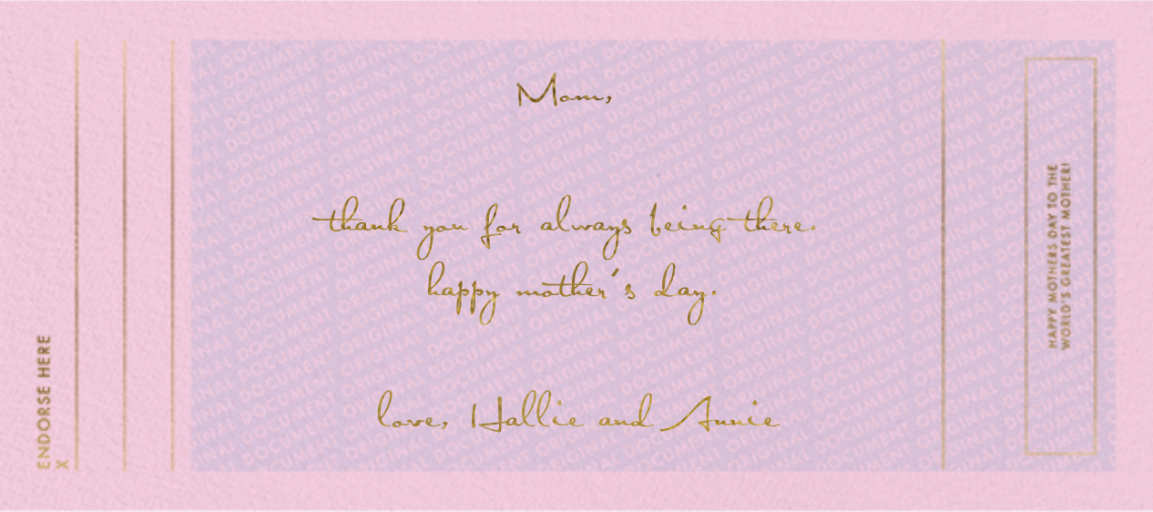 Mom,
thank you for always being there.
happy mother's day.
love, Hallie and Annie
ENDORSE HERE
X
HAPPY MOTHERS DAY TO THE
WORLD'S GREATEST MOTHER!
ORIGINAL DOCUMENT